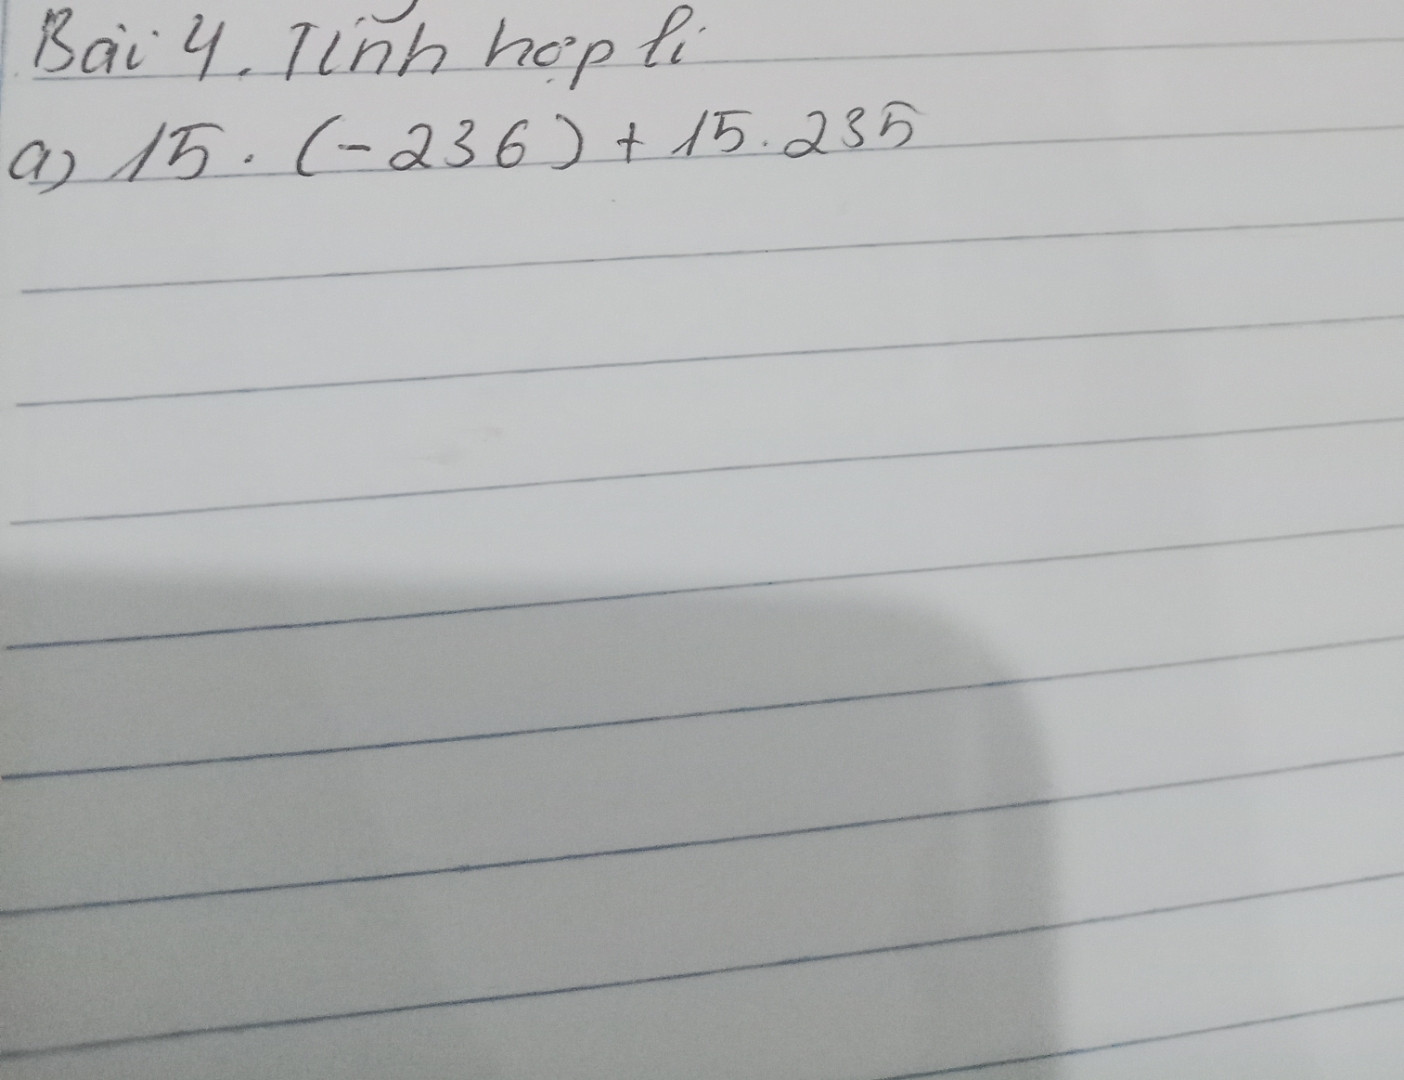 Bài 4. Tính hợp lí
a) 15 . (-236) + 15.235